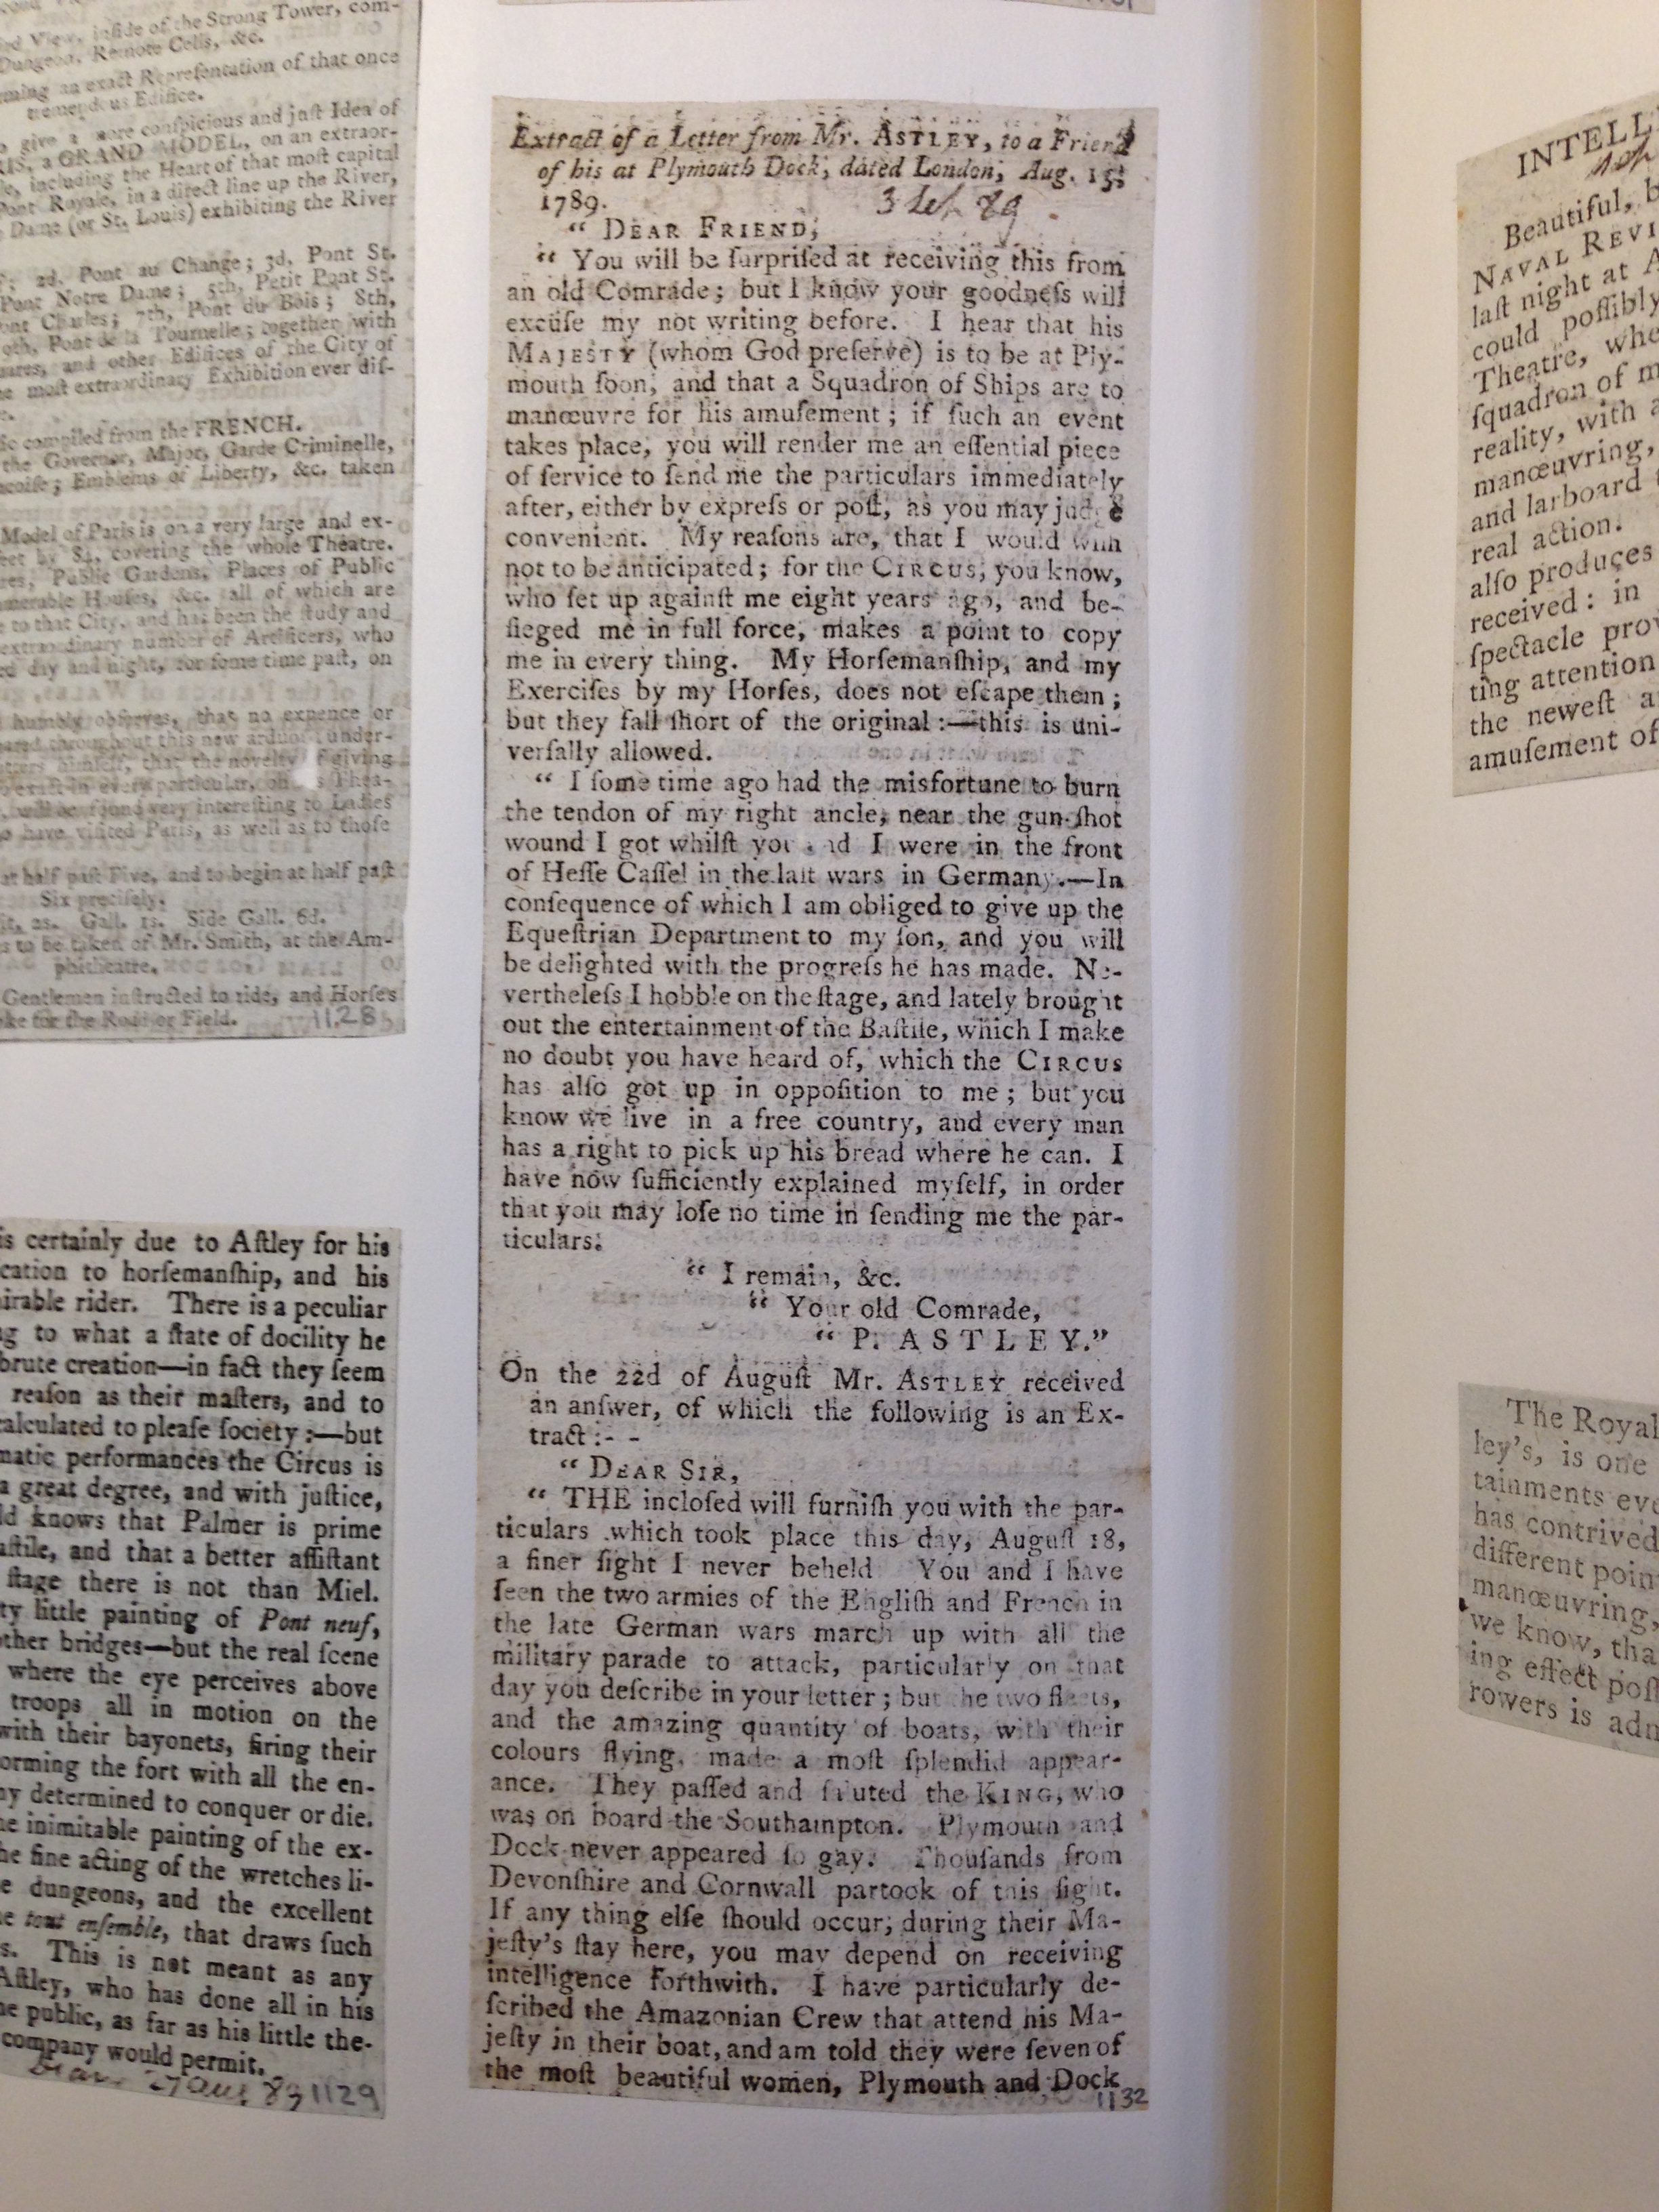 inside of the Strong Tower, com-
Dungeon, Remote Cells, &c.
an exact Representation of that once
tremendous Edifice.
give a more conspicious and just Idea of
a GRAND MODEL, on an extraor-
including the Heart of that most capital
Pont Royale, in a direct line up the River,
Dame (or St. Louis) exhibiting the River
2d, Pont au Change; 3d, Pont St.
Pont Notre Dame; 5th, Petit Pont St.
Charles; 7th, Pont du Bois; 8th,
9th, Pont de la Tournelle; together with
and other Edifices of the City of
most extraordinary Exhibition ever dis-
compiled from the FRENCH.
the Governor, Major, Garde Criminelle,
Emblems of Liberty, &c. taken
Model of Paris is on a very large and ex-
by 84, covering the whole Theatre.
Public Gardens, Places of Public
Houſes, &c. all of which are
to that City, and has been the ſtudy and
extraordinary number of Artificers, who
day and night, for ſome time paſt, on
humbly obſerves, that no expence or
throughout this new arduous under-
himſelf, that the novelty of giving
in every particular, on
will be found very intereſting to Ladies
have viſited Paris, as well as to thoſe
at half paſt Five, and to begin at half paſt
Six preciſely.
2s. Gall. 1s. Side Gall. 6d.
to be taken of Mr. Smith, at the Am-
phitheatre.
Gentlemen inſtructed to ride, and Horſes
for the Road or Field. 1128
is certainly due to Aſtley for his
to horſemanſhip, and his
rider. There is a peculiar
to what a ſtate of docility he
brute creation—in fact they ſeem
reaſon as their maſters, and to
calculated to pleaſe ſociety:—but
performances the Circus is
a great degree, and with juſtice,
knows that Palmer is prime
and that a better aſſiſtant
ſtage there is not than Miel.
little painting of Pont neuf,
other bridges—but the real ſcene
where the eye perceives above
troops all in motion on the
with their bayonets, firing their
the fort with all the en-
determined to conquer or die.
inimitable painting of the ex-
the fine acting of the wretches li-
dungeons, and the excellent
tout enſemble, that draws ſuch
This is not meant as any
Aſtley, who has done all in his
public, as far as his little the-
company would permit.
1129
Extract of a Letter from Mr. ASTLEY, to a Friend
of his at Plymouth Dock, dated London, Aug. 15,
1789.
“ DEAR FRIEND,
“ You will be ſurpriſed at receiving this from
an old Comrade; but I know your goodneſs will
excuſe my not writing before. I hear that his
MAJESTY (whom God preſerve) is to be at Ply-
mouth ſoon, and that a Squadron of Ships are to
manœuvre for his amuſement; if ſuch an event
takes place, you will render me an eſſential piece
of ſervice to ſend me the particulars immediately
after, either by expreſs or poſt, as you may judge
convenient. My reaſons are, that I would wiſh
not to be anticipated; for the CIRCUS, you know,
who ſet up againſt me eight years ago, and be-
ſieged me in full force, makes a point to copy
me in every thing. My Horſemanſhip, and my
Exerciſes by my Horſes, does not eſcape them;
but they fall ſhort of the original:—this is uni-
verſally allowed.
“ I ſome time ago had the misfortune to burn
the tendon of my right ancle, near the gun-ſhot
wound I got whilſt you and I were in the front
of Heſſe Caſſel in the laſt wars in Germany.—In
conſequence of which I am obliged to give up the
Equeſtrian Department to my ſon, and you will
be delighted with the progreſs he has made. Ne-
vertheleſs I hobble on the ſtage, and lately brought
out the entertainment of the Baſtile, which I make
no doubt you have heard of, which the CIRCUS
has alſo got up in oppoſition to me; but you
know we live in a free country, and every man
has a right to pick up his bread where he can. I
have now ſufficiently explained myſelf, in order
that you may loſe no time in ſending me the par-
ticulars.
“ I remain, &c.
“ Your old Comrade,
“ P. ASTLEY.”
On the 22d of Auguſt Mr. ASTLEY received
an anſwer, of which the following is an Ex-
tract:- -
“ DEAR SIR,
“ THE incloſed will furniſh you with the par-
ticulars which took place this day, Auguſt 18,
a finer ſight I never beheld. You and I have
ſeen the two armies of the Engliſh and French in
the late German wars march up with all the
military parade to attack, particularly on that
day you deſcribe in your letter; but the two fleets,
and the amazing quantity of boats, with their
colours flying, made a moſt ſplendid appear-
ance. They paſſed and ſaluted the KING, who
was on board the Southampton. Plymouth and
Dock never appeared ſo gay. Thouſands from
Devonſhire and Cornwall partook of this ſight.
If any thing elſe ſhould occur, during their Ma-
jeſty's ſtay here, you may depend on receiving
intelligence forthwith. I have particularly de-
ſcribed the Amazonian Crew that attend his Ma-
jeſty in their boat, and am told they were ſeven of
the moſt beautiful women, Plymouth and Dock
1132
Beautiful,
NAVAL
laſt night at
could poſſibly
Theatre,
ſquadron of
reality, with
manœuvring,
and larboard
real action.
alſo produces
received: in
ſpectacle
ting attention
the neweſt
amuſement of
The Royal
ley's, is one
tainments
has contrived
different
manœuvring,
we know,
ing effect
rowers is